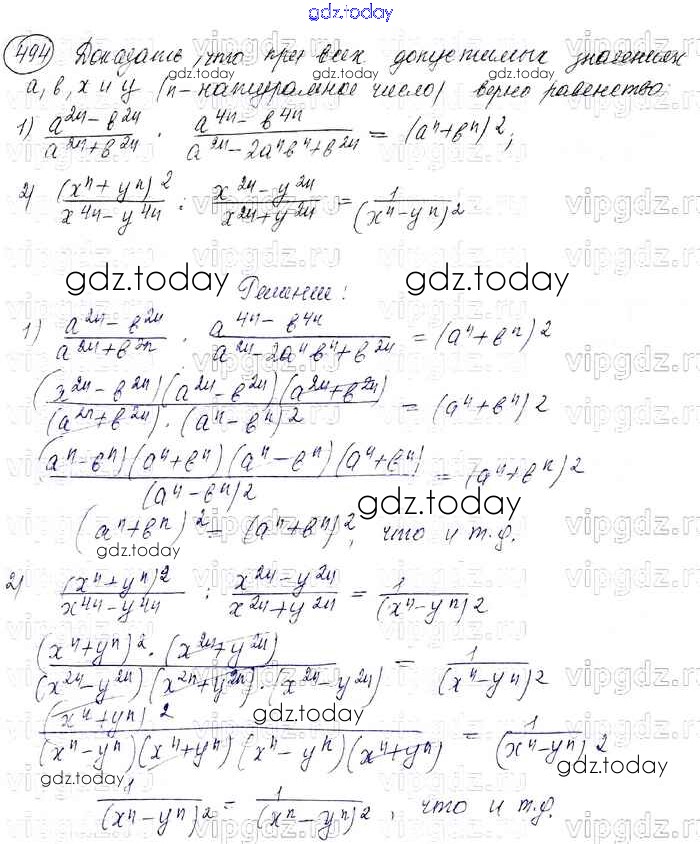 gdz.today
494 Доказать, что при всех допустимых значениях
a, b, x и y (n - натуральное число) верно равенство:
1) (a^2n - b^2n)/(a^2n + b^2n) · (a^4n - b^4n)/(a^2n - 2a^n b^n + b^2n) = (a^n + b^n)^2;
2) (x^n + y^n)^2/(x^4n - y^4n) : (x^2n - y^2n)/(x^2n + y^2n) = 1/(x^n - y^n)^2
Решение:
1) (a^2n - b^2n)/(a^2n + b^2n) · (a^4n - b^4n)/(a^2n - 2a^n b^n + b^2n) = (a^n + b^n)^2
((a^2n - b^2n)(a^2n - b^2n)(a^2n + b^2n))/((a^2n + b^2n) · (a^n - b^n)^2) = (a^n + b^n)^2
((a^n - b^n)(a^n + b^n)(a^n - b^n)(a^n + b^n))/(a^n - b^n)^2 = (a^n + b^n)^2
(a^n + b^n)^2 = (a^n + b^n)^2, что и т.д.
2) (x^n + y^n)^2/(x^4n - y^4n) : (x^2n - y^2n)/(x^2n + y^2n) = 1/(x^n - y^n)^2
((x^n + y^n)^2 · (x^2n + y^2n))/((x^2n - y^2n)(x^2n + y^2n) · (x^2n - y^2n)) = 1/(x^n - y^n)^2
(x^n + y^n)^2/((x^n - y^n)(x^n + y^n)(x^n - y^n)(x^n + y^n)) = 1/(x^n - y^n)^2
1/(x^n - y^n)^2 = 1/(x^n - y^n)^2, что и т.д.